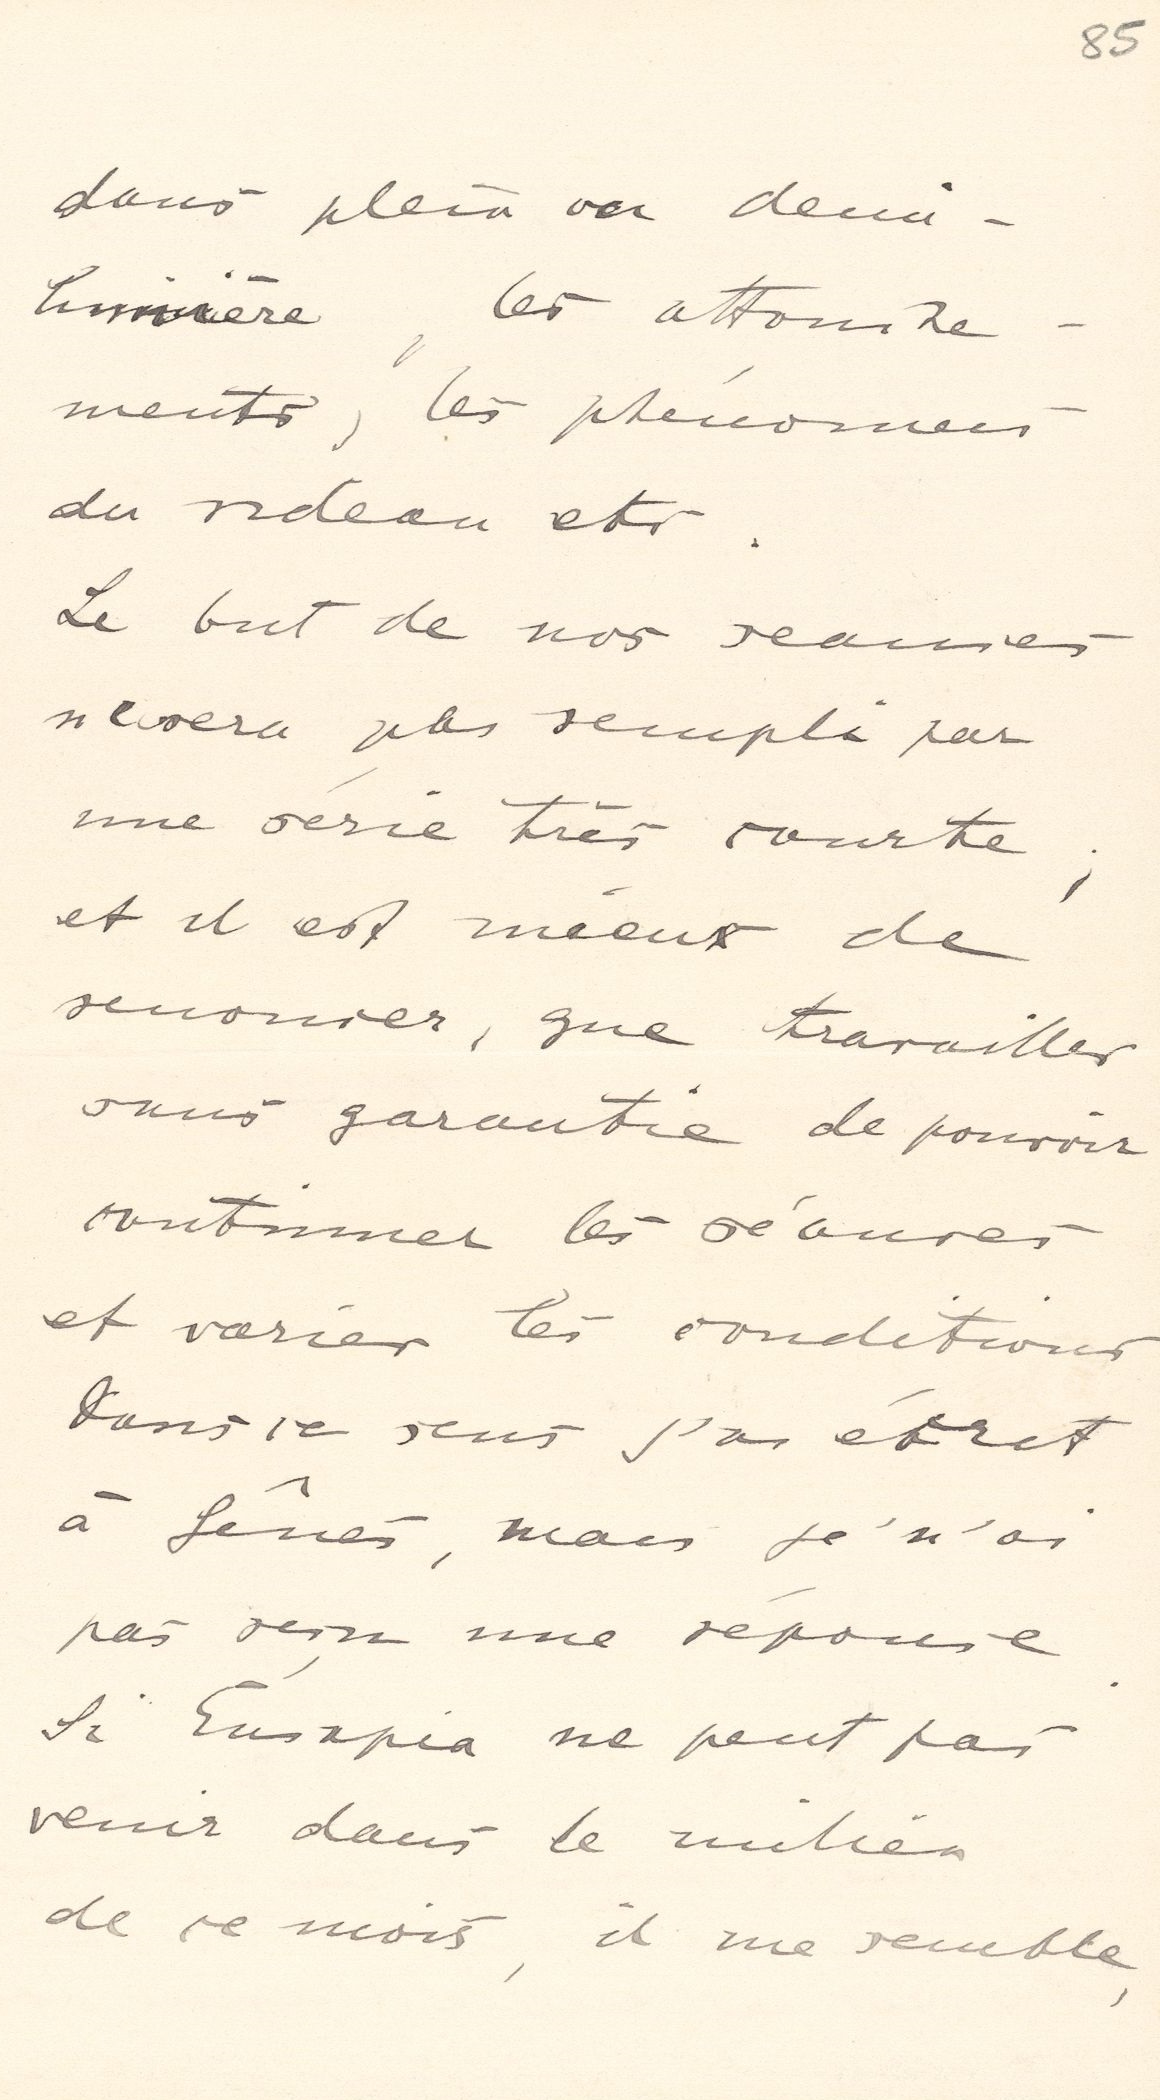 85
dans plein ou demi-
lumière, les attouche-
ments, les phénomens
du rideau etc.
Le but de nos seances
ne sera pas rempli par
une série très courte;
et il est mieux de
renoncer, que travailler
sans garantie de pouvoir
continuer les séances
et varier les conditions
Dans ce sens j'ai écrit
à Gênes, mais je n'ai
pas reçu une réponse.
Si Eusapia ne peut pas
venir dans le milieu
de ce mois, il me semble,